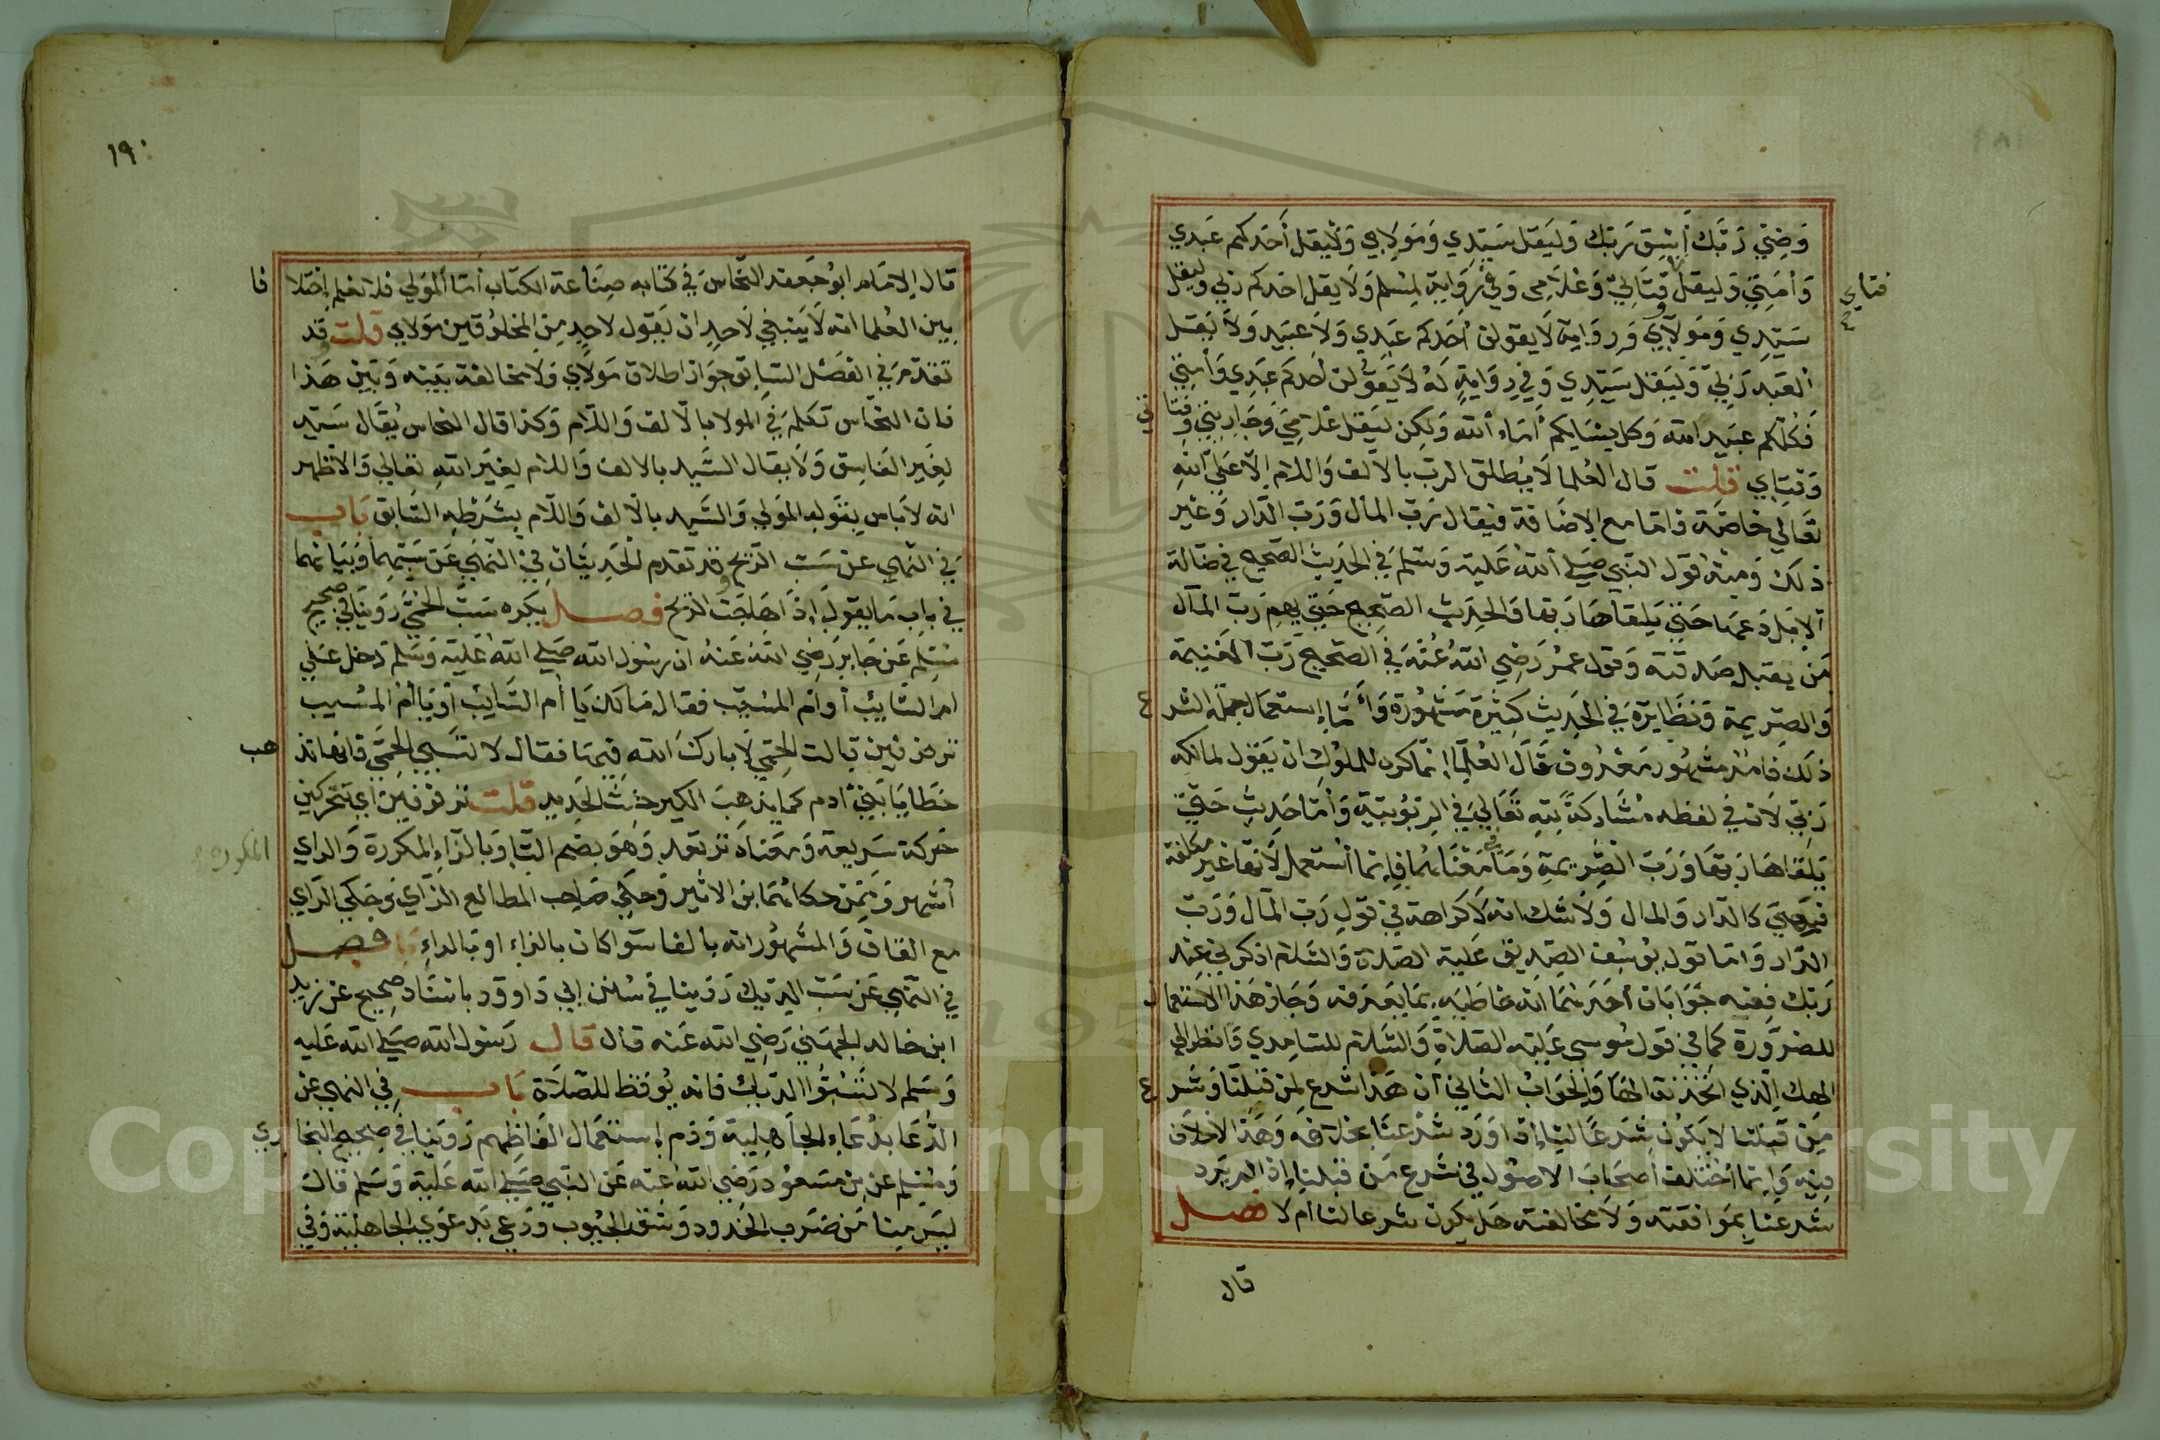 وَضِيِّ رَبَّك أَسْقِ رَبَّك وَليَقل سَيّدِي وَمَولاي وَلَا يَقل أَحَدكم عَبدي
وَأمَتِي وَليقل فَتَايَ وَغلامِي وَفي رِوَايَة لمُسْلم وَلَا يَقل احَدكم رَبي وليقل
فتاي
سَيّدِي وَمَولاي وَفي رِوَاية لَا يقولن أحَدكم عَبدي وَلَا عَبيد وَلَا يَقل
العَبد رَبي وَليَقل سَيّدِي وَفي رِوَايَةٍ لَهُ لَا يَقولن أحدكم عَبدِي وَأمتي
فَكُلّكم عَبيد الله وَكل نِسَايكم أمَاء الله وَلكِن ليَقل غلامِي وَجَاريتي وفتا
وَفتاي قلت قال العُلما لَا يُطلق الرب بالألف وَاللام إلا عَلى الله
تعَالي خاصّة فامّا مع الاِضَافة فيقال رَبّ المال وَرَبّ الدّار وَغير
ذلك وَمنه قول النبي صَلى الله عَليه وَسَلم في الحَديث الصّحيح في ضالة
الابل دَعهَا حَتى يَلقاهَا رَبها وَالحديث الصّحيح حَتى يهم رَبّ المال
مَن يَقبل صَدقته وَقول عمر رَضي الله عنه في الصَّحيح رَبّ الغنيمة
وَالصّريمة وَنظايره في الحَديث كثيرَة مَشهُورَة وَأمّا إستعمال حملة الشر
ع
ذلك فامر مشهور معروف قَال العُلما إنما كره للملوك ان يَقول لمالكه
رَبّي لان في لفظه مشَاركةً لله تعَالي في الرّبوبيّة وَأمّا حَديث حَتي
يَلقاهَا رَبها وَرَبّ الصّريمة وَمَا في مَعْناهُما فإنما أستعمل لانها غير مكلفة
فهي كالدّار وَالمال وَلَا شَك انه لَا كراهة في قولِ رَبّ المَال وَرَبّ
الدّار وَامّا قول يُوسُف الصّديق عَليه الصّلاة وَالسّلام اذكرني عِند
رَبّك ففيه جَوَابان أحَدهمَا انه خاطبَه بمَا يَعرفه وَجَاز هَذا الاستعمال
للضرورَة كما في قول مُوسى عَليه الصّلاةِ وَالسّلام للسّامِري وَانظر إلي
إلهك الّذي اتخذته الهًا وَالجَوابُ الثاني أن هَذا شَرع لمَن قَبلنا وَشر
ع
مَن قبلنا لا يَكون شرعًا لنا إذا وَرَد شَرعنا بخلافه وَهَذا لا خلاف
فيه وَإنما أختلف أصحَابُ الاصُول في شَرع مَن قبلنا إذا لم يَرد
شَرعنا بمَوافقته وَلَا مخالفته هَل يكون شرعا لنا أم لا فصل
قال
١٩٠
قال الامَام ابُو جَعفر النّحاس في كتابه صِنَاعة الكتاب أمّا المَولي فلا نعلم إختلا
فا
بين العُلما انه لَا يَنبَغي لاحدِ ان يَقول لاحدٍ مِن المخلوقين مَولاي قلت قد
تقدّم في الفَصْل السّابق جَوَاز اطلاق مَولاي وَلَا مخالفة بَينه وَبَيْن هَذا
فان النحّاس تَكلم في المولا بالألف وَاللّام وَكذا قال النحاس يُقَال سَيّد
لِغَير الفاسِق وَلَا يقال السّيد بالالف وَاللام لِغَير الله تعَالي وَالأظهر
انه لَا بَاس بقَوله المَولي وَالسّيد بالألف وَاللّام بِشَرْطِهِ السّابق بَاب
في النهي عَن سَبّ الرّيح قد تقدم الحَديثان في النّهي عَن سَبّهما وَبَيَانهما
في باب مَا يقول إذا هَاجَت الريح فصل يكره سَبّ الحُمّى رَوَينا في صحيح
مُسْلِم عَن جَابر رَضِي الله عَنهُ ان رسُول الله صَلى الله عَليه وَسَلم دَخل عَلى
ام السّايب أوام المسَيّب فقال مَا لك يَا أم السّايب أو يَا أم المسُيب
تزفزفين قالت الحُمّي لَا بارك الله فيهَا فقال لا تسَبي الحُمّى فانها تذ
هب
خطايَا بَني آدم كما يذهب الكير خبث الحَديد قلت تزفزفين أي تتحركين
حَركة سَريعة وَمعناه ترتعد وَهوَ بضم التا وَبالزاء المكررة وَالراي
المكررة
أشهر وَممن حكاهُما بن الاثير وَحكي صَاحب المطالع الزاي وَحكي الرّاي
مع القاف وَالمشهُور انه بالفا سَوا كان بالزاء او بالراء فصل
في النهي عَن سَبّ الديك رَوَينا في سُنن ابي دَاوود باسنَاد صحيح عن زيد
ابن خالد الجهَني رَضي الله عَنه قال قال رَسُول الله صَلى الله عَليه
وَسَلم لا تسُبُّوا الدّيك فانه يُوقظ للصّلَاة بَاب في النهي عن
الدّعَا بدُعَاء الجَاهِليَة وَذم إستعمَال الفَاظهم رَوَينا في صحيح البخا
ري
وَمُسْلِم عن بن مسعود رَضي الله عنه عَن النبي صَلى الله عَليه وَسَلم قال
ليسَ مِنا مَن ضَرب الخدود وَشق الجيُوب وَدَعي بدعوَي الجاهلية وَفي